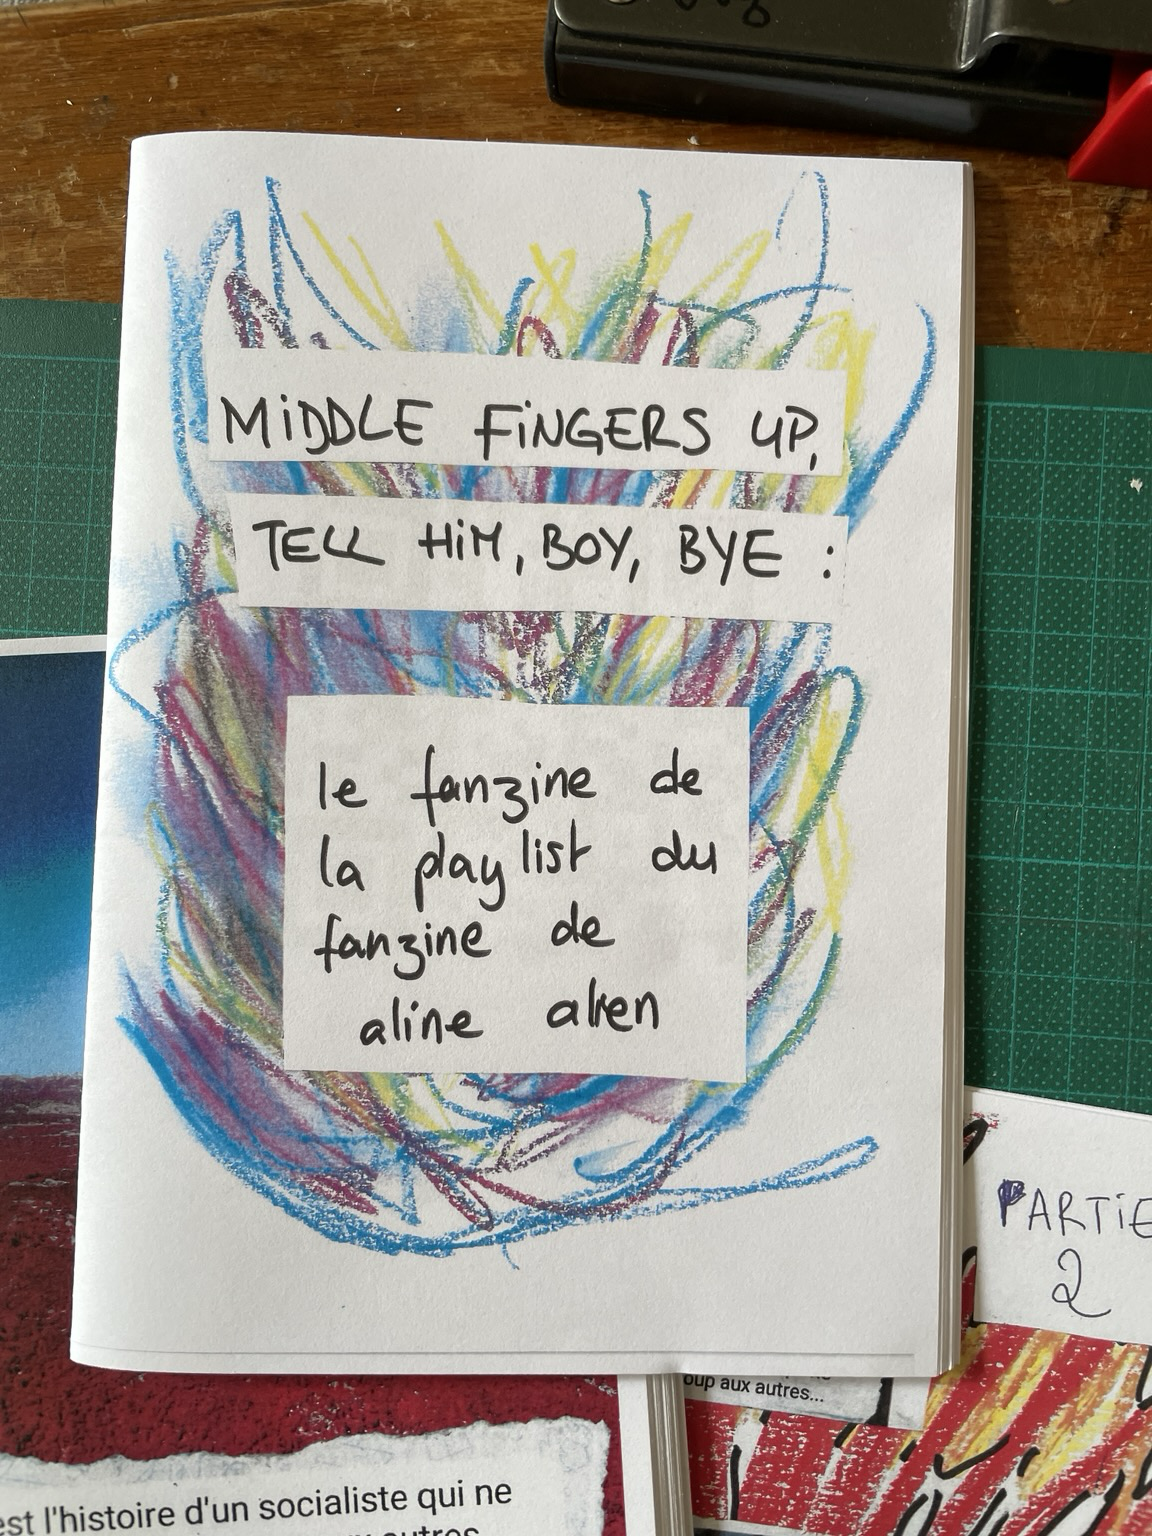 MiDDLE FiNGERS UP,
TELL HiM, BOY, BYE :
le fanzine de
la playlist du
fanzine de
aline alien
PARTiE
2
oup aux autres...
est l'histoire d'un socialiste qui ne
autres